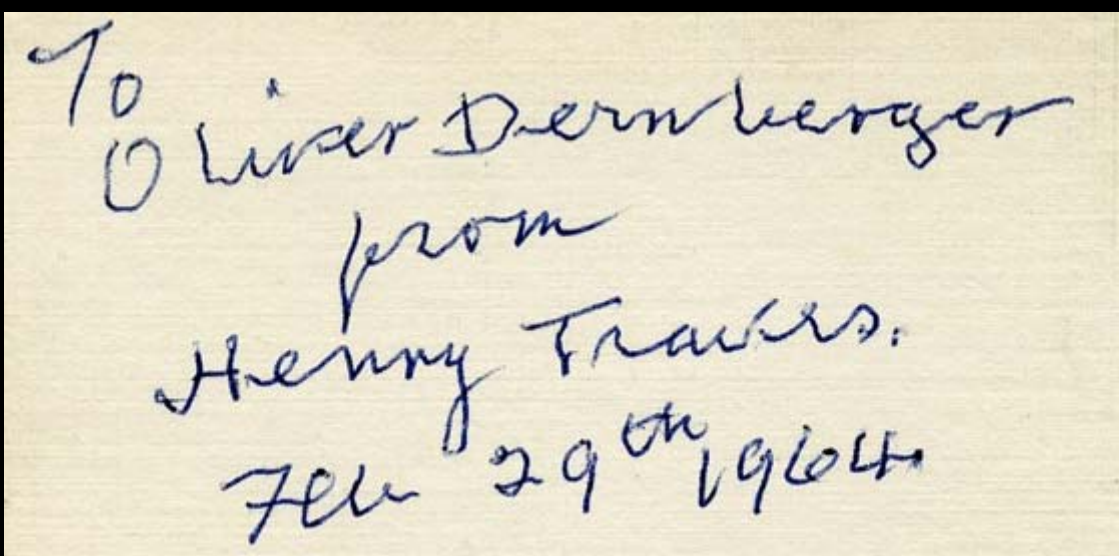 To
Oliver Dernberger
from
Henry Travers.
Feb 29th 1964.